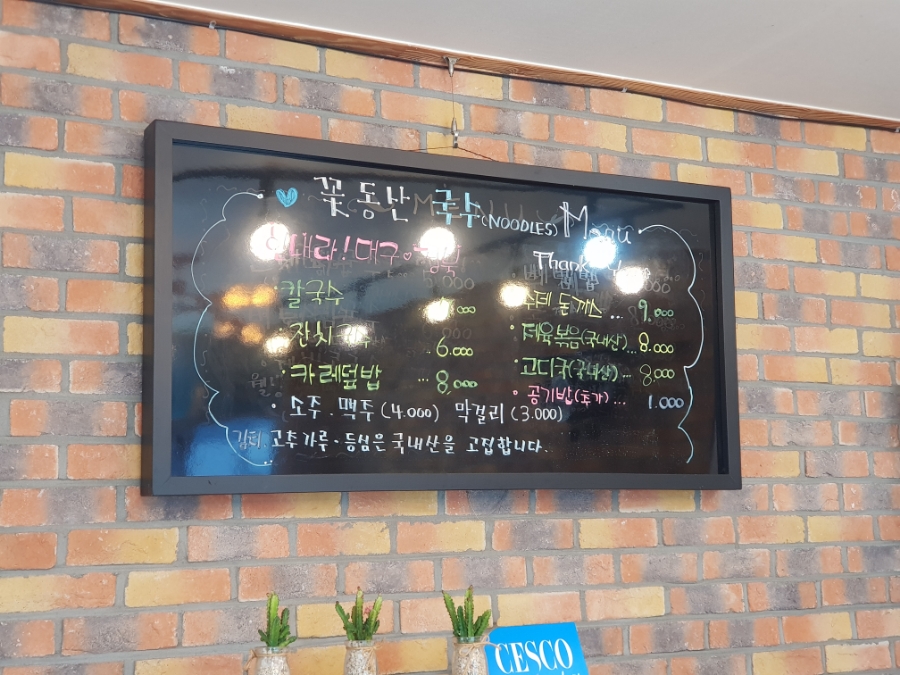 꽃동산 국수 (NOODLES) Menu
힘내라! 대구♡경북
Thank you
· 칼국수 .000
· 수제 돈까스 ... 9.000
· 잔치국수 ... 6.000
· 제육볶음(국내산) ... 8.000
· 카레덮밥 ... 8.000
· 고디국(국내산) ... 8.000
· 공기밥(추가) ... 1.000
· 소주. 맥주 (4.000) 막걸리 (3.000)
김치. 고추가루 · 등심은 국내산을 고집합니다.
CESCO